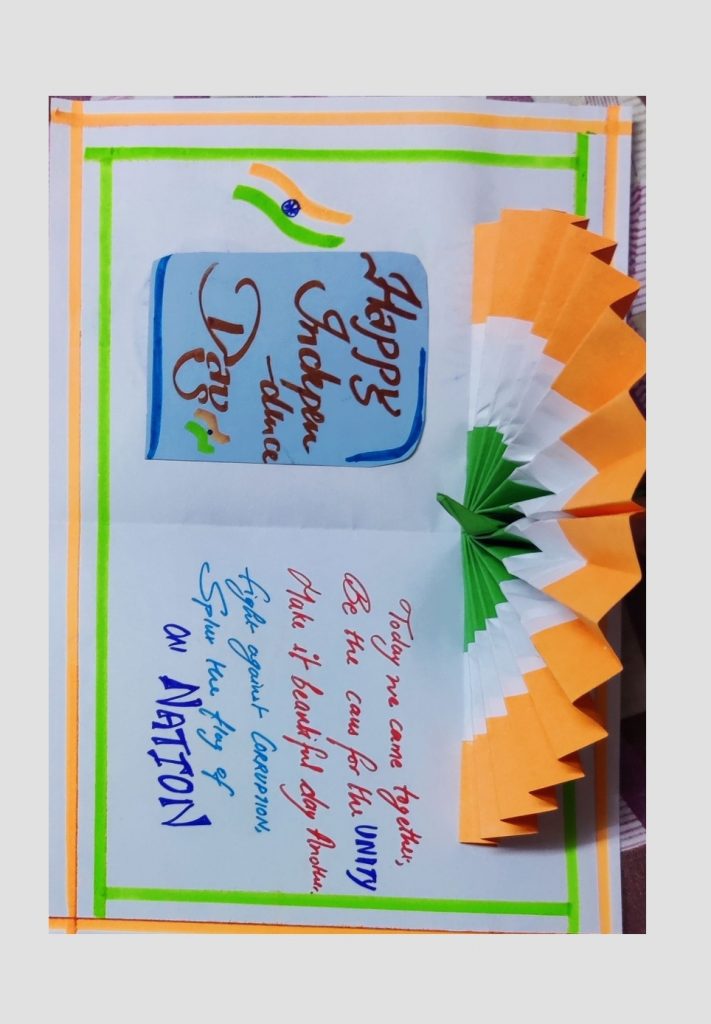 Happy
Indepen
-dence
Day
Today we came together,
Be the caus for the UNITY
Make it beautiful day Another.
fight against CORRUPTION,
the flag of
ON NATION